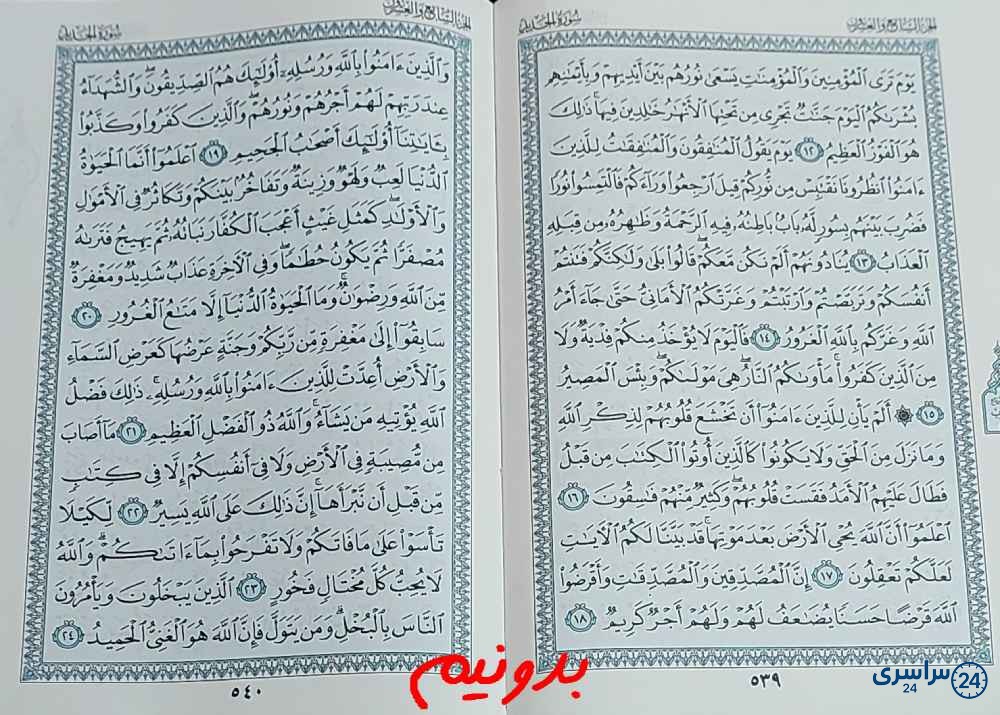 الجزء السابع والعشرون
سورة الحديد
يَوْمَ تَرَى الْمُؤْمِنِينَ وَالْمُؤْمِنَاتِ يَسْعَىٰ نُورُهُم بَيْنَ أَيْدِيهِمْ وَبِأَيْمَٰنِهِم
بُشْرَىٰكُمُ الْيَوْمَ جَنَّٰتٌ تَجْرِي مِن تَحْتِهَا الْأَنْهَٰرُ خَٰلِدِينَ فِيهَا ۚ ذَٰلِكَ
هُوَ الْفَوْزُ الْعَظِيمُ ١٢ يَوْمَ يَقُولُ الْمُنَٰفِقُونَ وَالْمُنَٰفِقَٰتُ لِلَّذِينَ
ءَامَنُوا انظُرُونَا نَقْتَبِسْ مِن نُّورِكُمْ قِيلَ ارْجِعُوا وَرَآءَكُمْ فَالْتَمِسُوا نُورًا
فَضُرِبَ بَيْنَهُم بِسُورٍ لَّهُۥ بَابٌۢ بَاطِنُهُۥ فِيهِ الرَّحْمَةُ وَظَٰهِرُهُۥ مِن قِبَلِهِ
الْعَذَابُ ١٣ يُنَادُونَهُمْ أَلَمْ نَكُن مَّعَكُمْ ۖ قَالُوا بَلَىٰ وَلَٰكِنَّكُمْ فَتَنتُمْ
أَنفُسَكُمْ وَتَرَبَّصْتُمْ وَارْتَبْتُمْ وَغَرَّتْكُمُ الْأَمَانِيُّ حَتَّىٰ جَآءَ أَمْرُ
اللَّهِ وَغَرَّكُم بِاللَّهِ الْغَرُورُ ١٤ فَالْيَوْمَ لَا يُؤْخَذُ مِنكُمْ فِدْيَةٌ وَلَا
مِنَ الَّذِينَ كَفَرُوا ۚ مَأْوَىٰكُمُ النَّارُ ۖ هِيَ مَوْلَىٰكُمْ ۖ وَبِئْسَ الْمَصِيرُ
١٥ ۞ أَلَمْ يَأْنِ لِلَّذِينَ ءَامَنُوا أَن تَخْشَعَ قُلُوبُهُمْ لِذِكْرِ اللَّهِ
وَمَا نَزَلَ مِنَ الْحَقِّ وَلَا يَكُونُوا كَالَّذِينَ أُوتُوا الْكِتَٰبَ مِن قَبْلُ
فَطَالَ عَلَيْهِمُ الْأَمَدُ فَقَسَتْ قُلُوبُهُمْ ۖ وَكَثِيرٌ مِّنْهُمْ فَٰسِقُونَ ١٦
اعْلَمُوا أَنَّ اللَّهَ يُحْيِ الْأَرْضَ بَعْدَ مَوْتِهَا ۚ قَدْ بَيَّنَّا لَكُمُ الْءَايَٰتِ
لَعَلَّكُمْ تَعْقِلُونَ ١٧ إِنَّ الْمُصَّدِّقِينَ وَالْمُصَّدِّقَٰتِ وَأَقْرَضُوا
اللَّهَ قَرْضًا حَسَنًا يُضَٰعَفُ لَهُمْ وَلَهُمْ أَجْرٌ كَرِيمٌ ١٨
٥٣٩
الجزء السابع والعشرون
سورة الحديد
وَالَّذِينَ ءَامَنُوا بِاللَّهِ وَرُسُلِهِۦٓ أُولَٰٓئِكَ هُمُ الصِّدِّيقُونَ ۖ وَالشُّهَدَآءُ
عِندَ رَبِّهِمْ لَهُمْ أَجْرُهُمْ وَنُورُهُمْ ۖ وَالَّذِينَ كَفَرُوا وَكَذَّبُوا
بِـَٔايَٰتِنَآ أُولَٰٓئِكَ أَصْحَٰبُ الْجَحِيمِ ١٩ اعْلَمُوا أَنَّمَا الْحَيَوٰةُ
الدُّنْيَا لَعِبٌ وَلَهْوٌ وَزِينَةٌ وَتَفَاخُرٌۢ بَيْنَكُمْ وَتَكَاثُرٌ فِي الْأَمْوَٰلِ
وَالْأَوْلَٰدِ ۖ كَمَثَلِ غَيْثٍ أَعْجَبَ الْكُفَّارَ نَبَاتُهُۥ ثُمَّ يَهِيجُ فَتَرَىٰهُ
مُصْفَرًّا ثُمَّ يَكُونُ حُطَٰمًا ۖ وَفِي الْءَاخِرَةِ عَذَابٌ شَدِيدٌ وَمَغْفِرَةٌ
مِّنَ اللَّهِ وَرِضْوَٰنٌ ۚ وَمَا الْحَيَوٰةُ الدُّنْيَآ إِلَّا مَتَٰعُ الْغُرُورِ ٢٠
سَابِقُوٓا إِلَىٰ مَغْفِرَةٍ مِّن رَّبِّكُمْ وَجَنَّةٍ عَرْضُهَا كَعَرْضِ السَّمَآءِ
وَالْأَرْضِ أُعِدَّتْ لِلَّذِينَ ءَامَنُوا بِاللَّهِ وَرُسُلِهِۦ ۚ ذَٰلِكَ فَضْلُ
اللَّهِ يُؤْتِيهِ مَن يَشَآءُ ۚ وَاللَّهُ ذُو الْفَضْلِ الْعَظِيمِ ٢١ مَآ أَصَابَ
مِن مُّصِيبَةٍ فِي الْأَرْضِ وَلَا فِيٓ أَنفُسِكُمْ إِلَّا فِي كِتَٰبٍ
مِّن قَبْلِ أَن نَّبْرَأَهَآ ۚ إِنَّ ذَٰلِكَ عَلَى اللَّهِ يَسِيرٌ ٢٢ لِّكَيْلَا
تَأْسَوْا عَلَىٰ مَا فَاتَكُمْ وَلَا تَفْرَحُوا بِمَآ ءَاتَىٰكُمْ ۗ وَاللَّهُ
لَا يُحِبُّ كُلَّ مُخْتَالٍ فَخُورٍ ٢٣ الَّذِينَ يَبْخَلُونَ وَيَأْمُرُونَ
النَّاسَ بِالْبُخْلِ ۗ وَمَن يَتَوَلَّ فَإِنَّ اللَّهَ هُوَ الْغَنِيُّ الْحَمِيدُ ٢٤
٥٤٠
بدونیم
سراسری 24
24